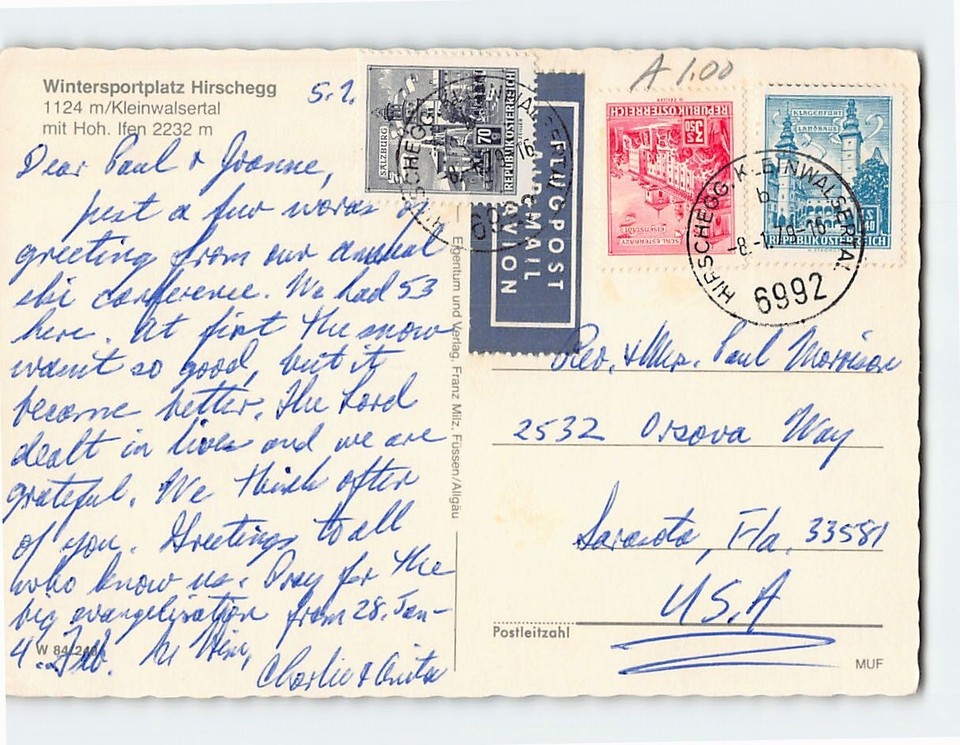 Wintersportplatz Hirschegg
1124 m/Kleinwalsertal
mit Hoh. Ifen 2232 m
5.1.
Dear Paul & Joanne,
just a few words of
greeting from our annual
ski conference. We had 53
here. At first the snow
wasn't so good, but it
became better. The Lord
dealt in lives and we are
grateful. We think often
of you. Greetings to all
who know us. Pray for the
big evangelisation from 28. Jan-
4. Feb. In Him,
Charlie & Anita
W 84/240
Eigentum und Verlag Franz Milz, Füssen/Allgäu
SALZBURG
70g
REPUBLIK ÖSTERREICH
FLUGPOST
AIR MAIL
AVION
A 1.00
REPUBLIK ÖSTERREICH
3.50 S
KLAGENFURT
LANDHAUS
REPUBLIK ÖSTERREICH
HIRSCHEGG, KLEINWALSERTAL
6992
Rev. & Mrs. Paul Morrison
2532 Orsova Way
Sarasota, Fla. 33581
U.S.A
Postleitzahl
MUF